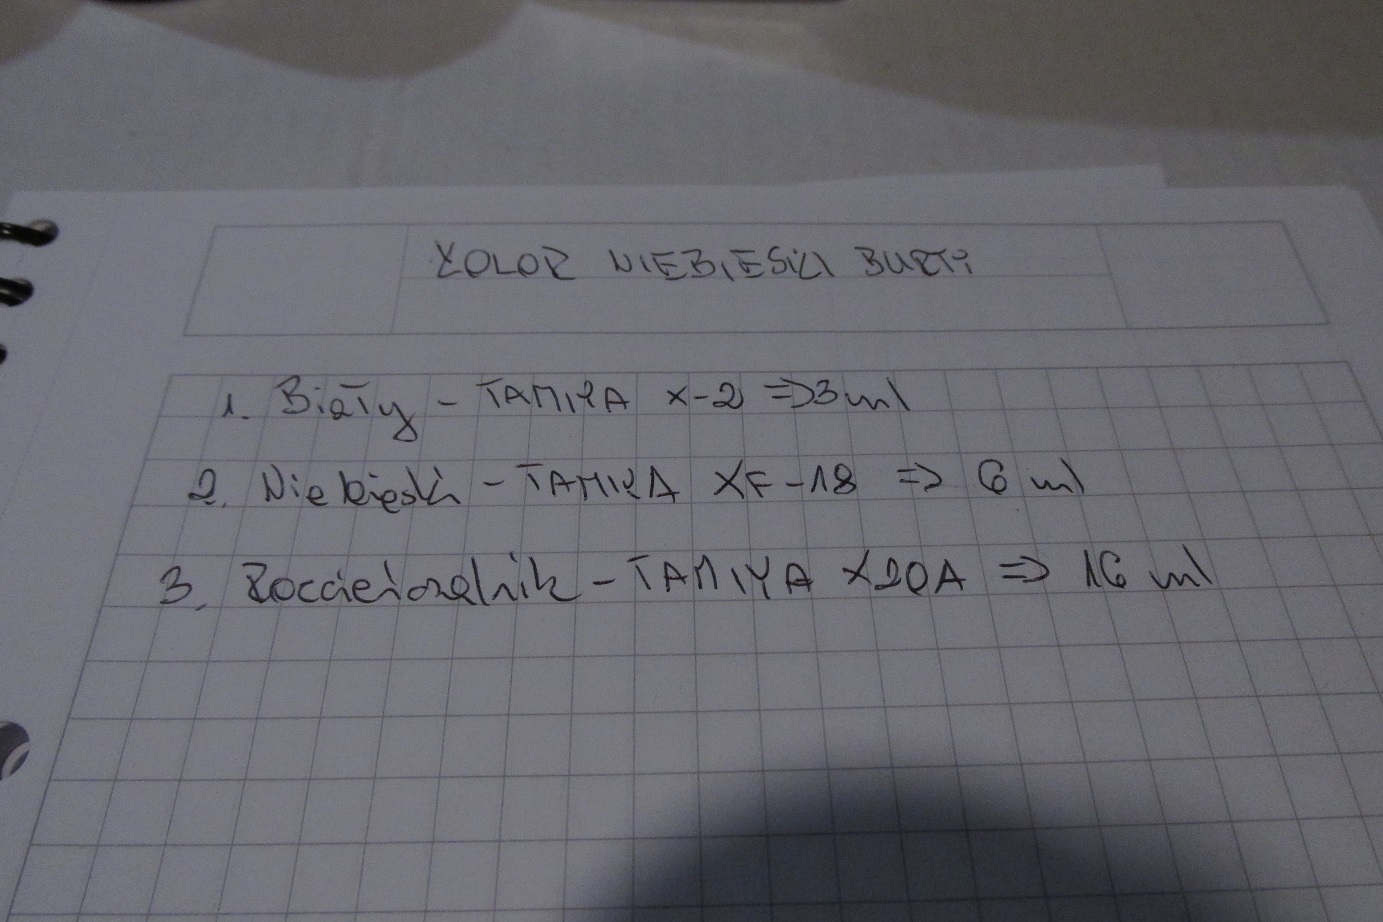 KOLOR NIEBIESKI BURTY
1. Biały - TAMIYA X-2 => 3 ml
2. Niebieski - TAMIYA XF-18 => 6 ml
3. Rozcieńczalnik - TAMIYA X20A => 16 ml